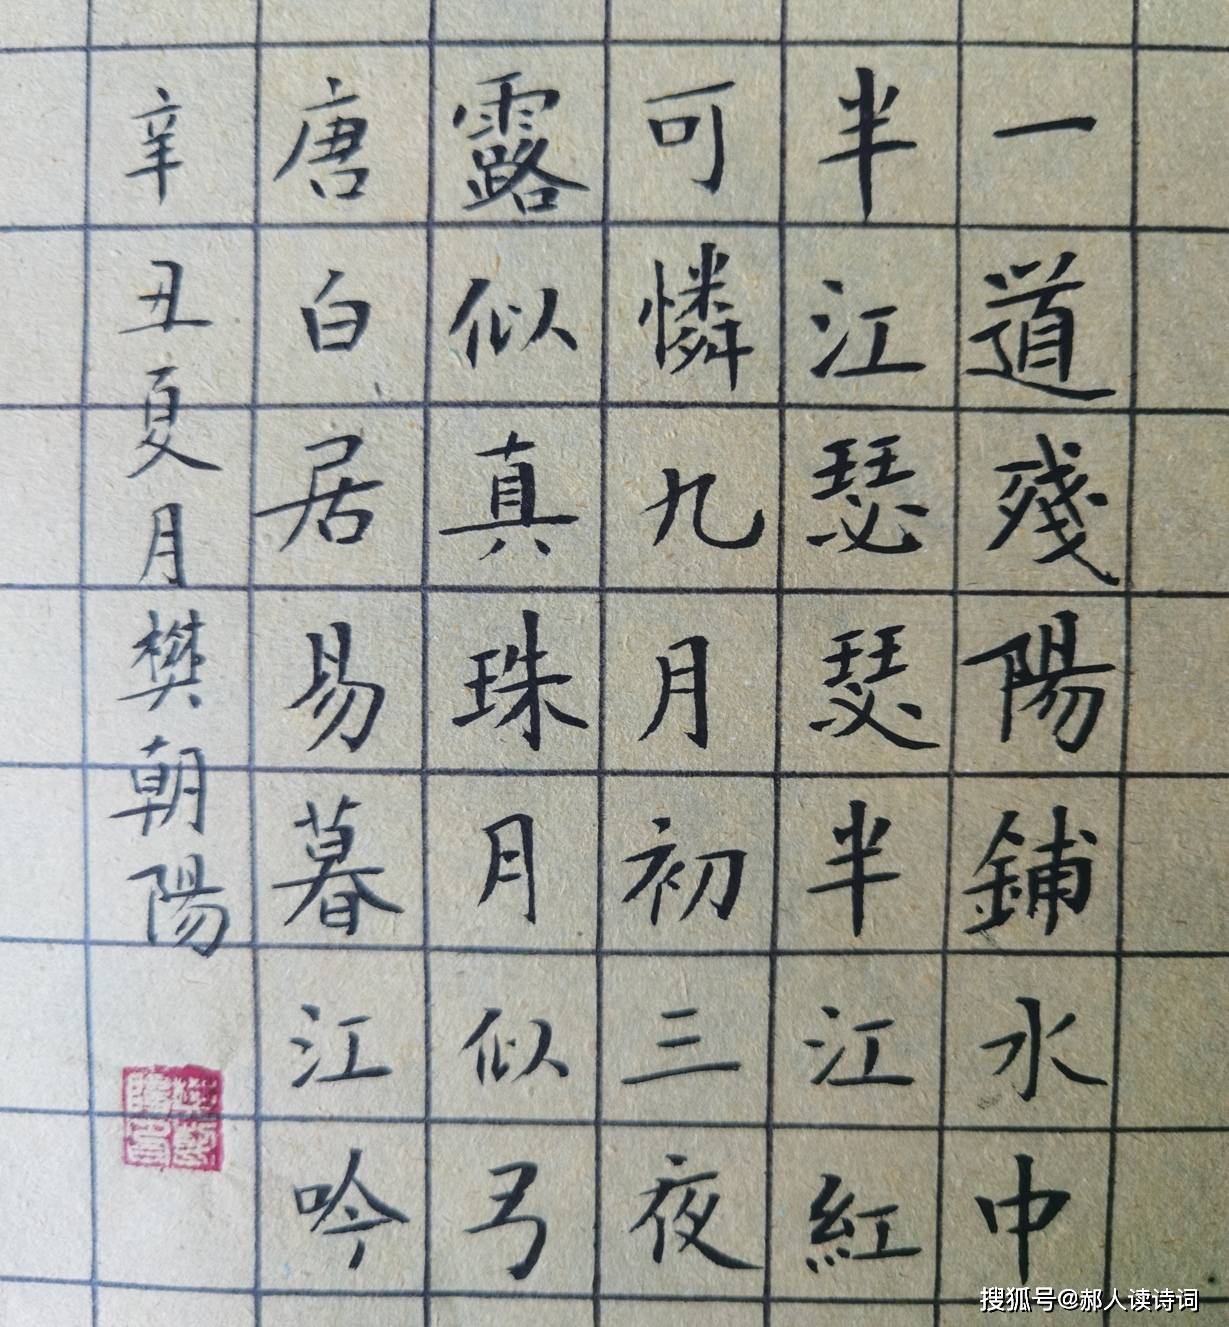 一道殘陽鋪水中
半江瑟瑟半江紅
可憐九月初三夜
露似真珠月似弓
唐白居易暮江吟
辛丑夏月樊朝陽
搜狐号@郝人读诗词